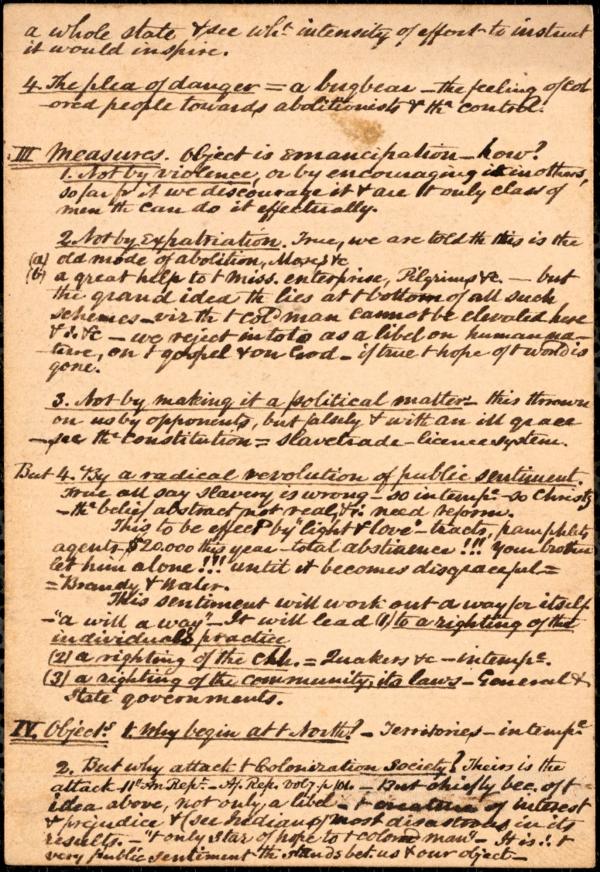 a whole state & see wht intensity of effort to instruct
it would inspire.
4. The plea of danger = a bugbear – the feeling of col
ored people towards abolitionists & thr control.
III Measures. Object is Emancipation – how?
1. Not by violence, or by encouraging it in others,
so far fr it we discourage it & are t only class of
men th can do it effectually.
2. Not by Expatriation. True, we are told th this is the
(a) old mode of abolition, Moses &c
(b) a great help to t miss. enterprise, Pilgrims &c. – but
the grand idea th lies at t bottom of all such
schemes – viz th t cold man cannot be elevated here
& – we reject in toto as a libel on human na-
ture, on t gospel & on God – if true t hope of t world is
gone.
3. Not by making it a political matter – this thrown
on us by opponents, but falsely & with an ill grace
– see the Constitution = slavetrade – licence system.
But 4. By a radical revolution of public sentiment.
True all say slavery is wrong – so intempe – so Christy
– the belief abstract not real, & need reform.
This to be effecd by "light & love" – tracts, pamphlets
agents – $20.000 this year – total abstinence !!! Your brother
let him alone !!! until it becomes disgraceful =
= Brandy & Water.
This sentiment will work out a way for itself
– "a will a way" – It will lead (1) to a righting of the
individual's practice
(2) a righting of the chh. = Quakers &c – intempe.
(3) a righting of the community, its laws – General &
State governments.
IV. Objects 1. Why begin at t North? – Territories – intempe
2. But why attack t Colonization Society? Theirs is the
attack – 11th An. Rept. – Af. Rep. Vol 7. p 101. – But chiefly bec. of t
idea above, not only a libel – t creature of interest
& prejudice & (see Indians) most disastrous in its
results. – "t only star of hope to t colored man" – It is t
very public sentiment th stands bet. us & our object –